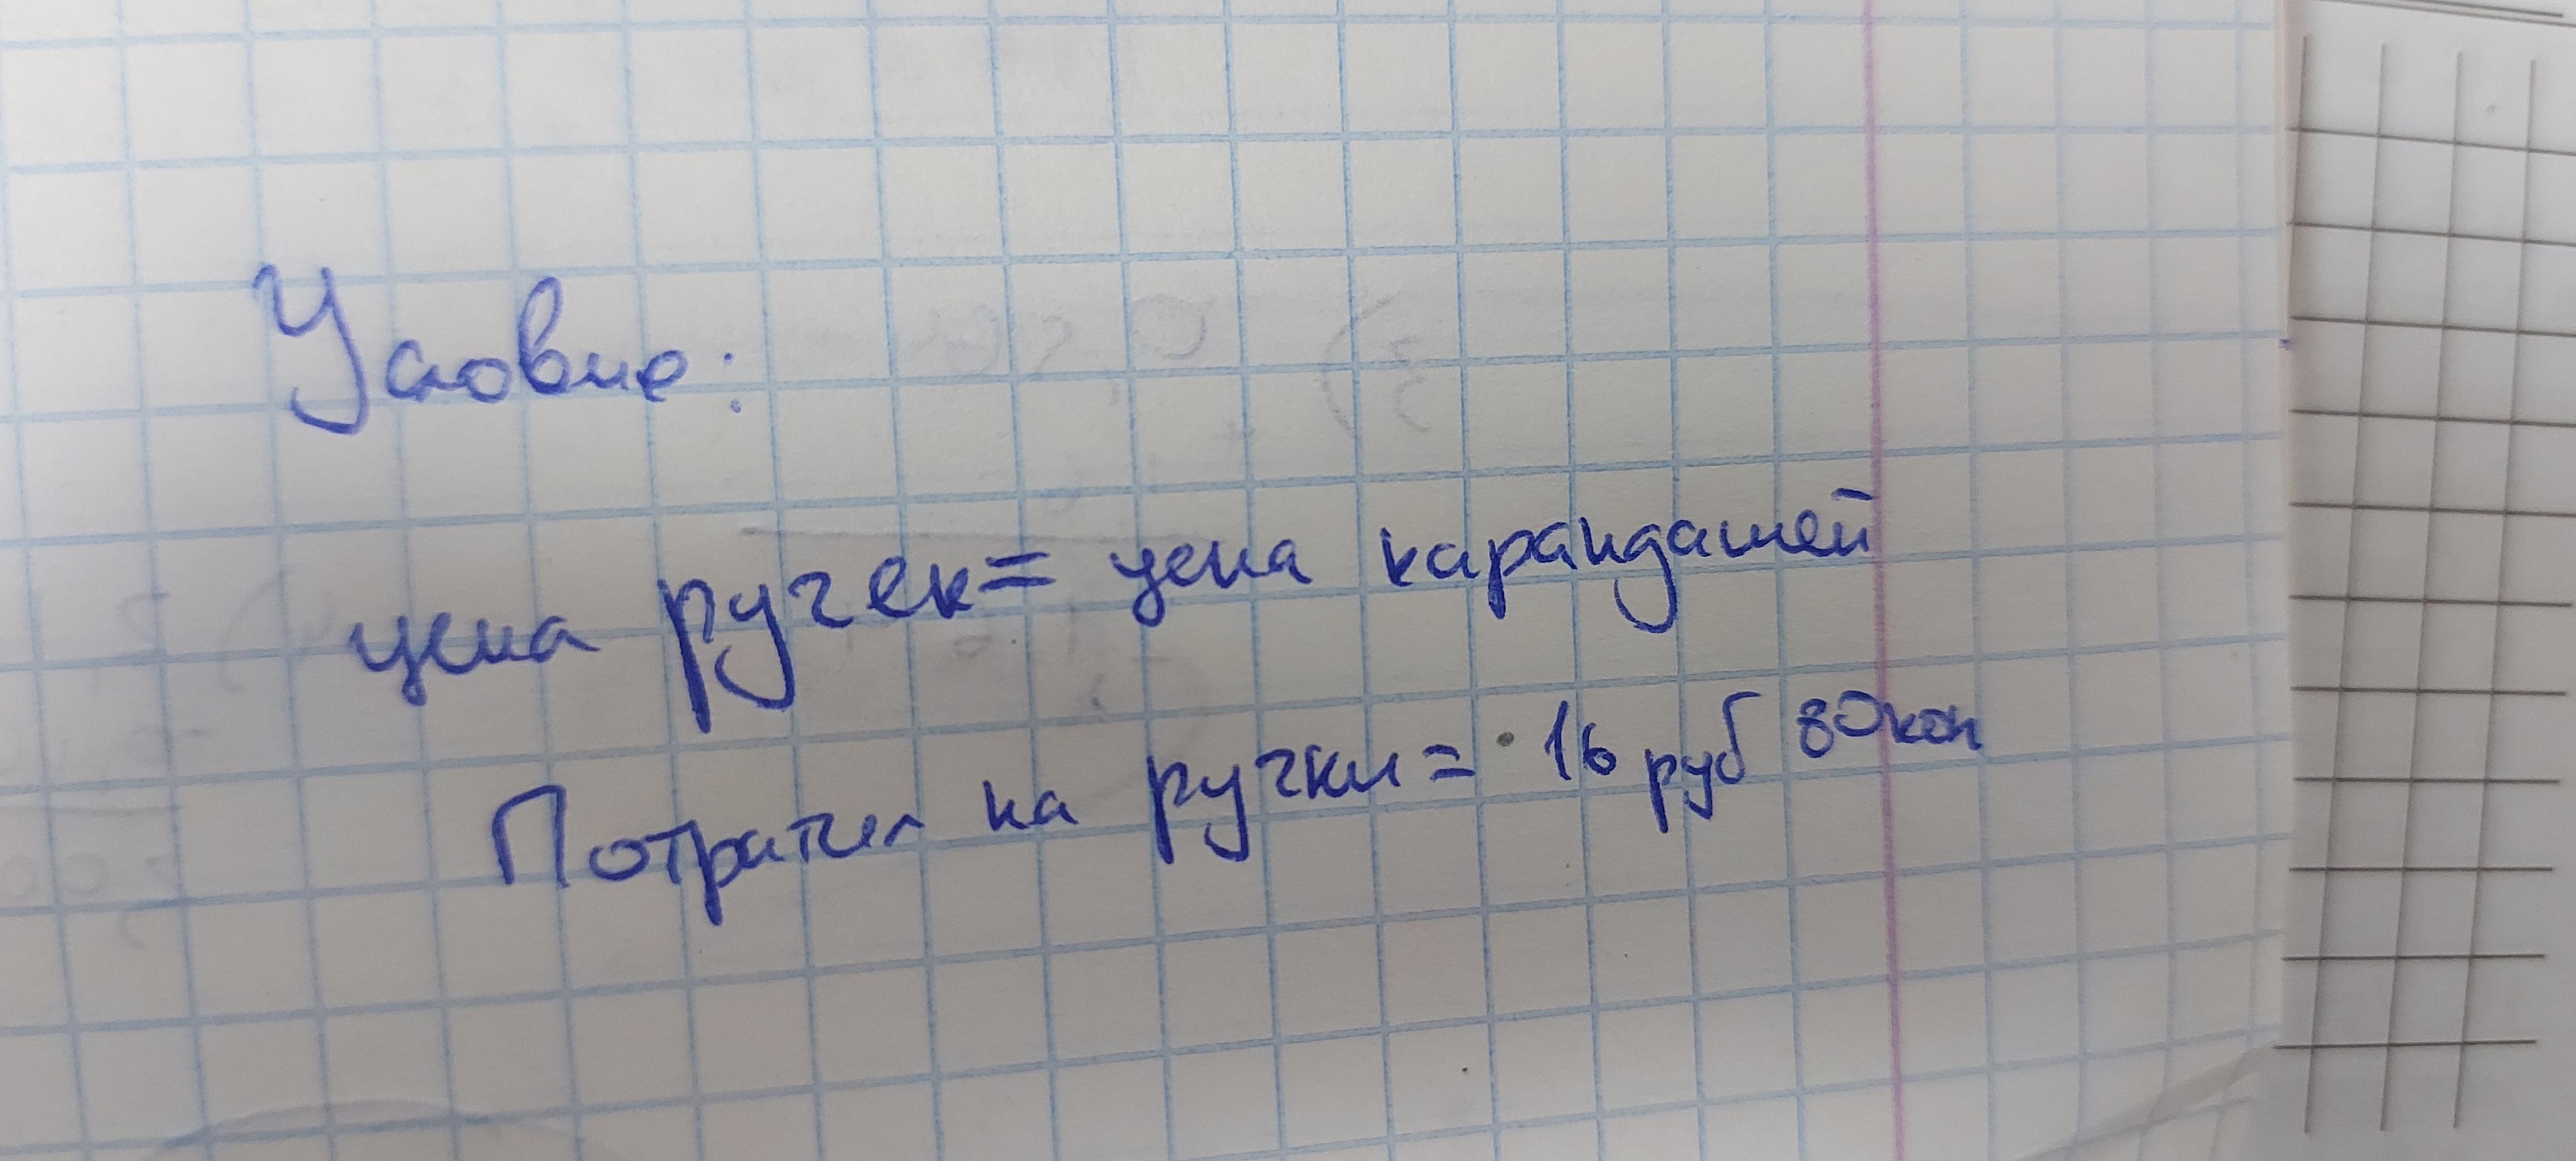 Условие:
цена ручек= цена карандашей
Потратил на ручки= 16 руб 80коп